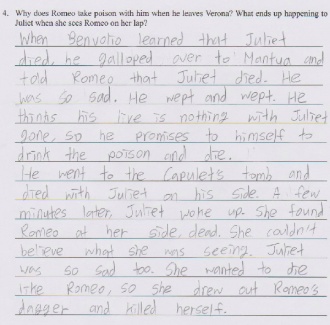 4. Why does Romeo take poison with him when he leaves Verona? What ends up happening to
Juliet when she sees Romeo on her lap?
When Benvolio learned that Juliet
died, he galloped over to Mantua and
told Romeo that Juliet died. He
was so sad. He wept and wept. He
thinks his live is nothing with Juliet
gone, so he promises to himself to
drink the poison and die.
He went to the Capulet's tomb and
died with Juliet on his side. A few
minutes later, Juliet woke up. She found
Romeo at her side, dead. She couldn't
believe what she was seeing. Juliet
was so sad too. She wanted to die
like Romeo, so she drew out Romeo's
dagger and killed herself.